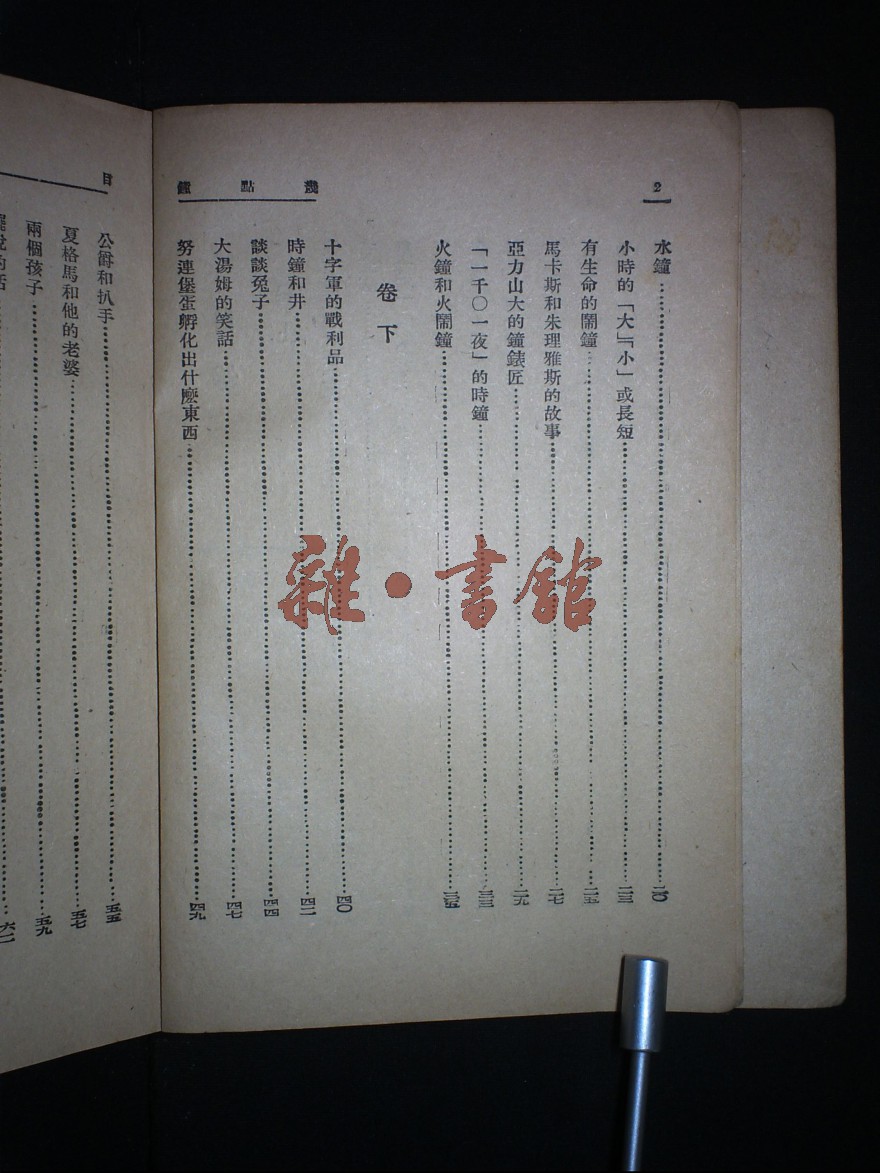 2
幾點鐘
水鐘……二〇
小時的「大」「小」或長短……二三
有生命的鬧鐘……二五
馬卡斯和朱理雅斯的故事……二七
亞力山大的鐘錶匠……二九
「一千〇一夜」的時鐘……三三
火鐘和火鬧鐘……三五
卷下
十字軍的戰利品……四〇
時鐘和井……四二
談談兔子……四四
大湯姆的笑話……四七
努連堡蛋孵化出什麽東西……四九
目
公爵和扒手……五五
夏格馬和他的老婆……五七
兩個孩子……五九
的話……六二
雜·書館